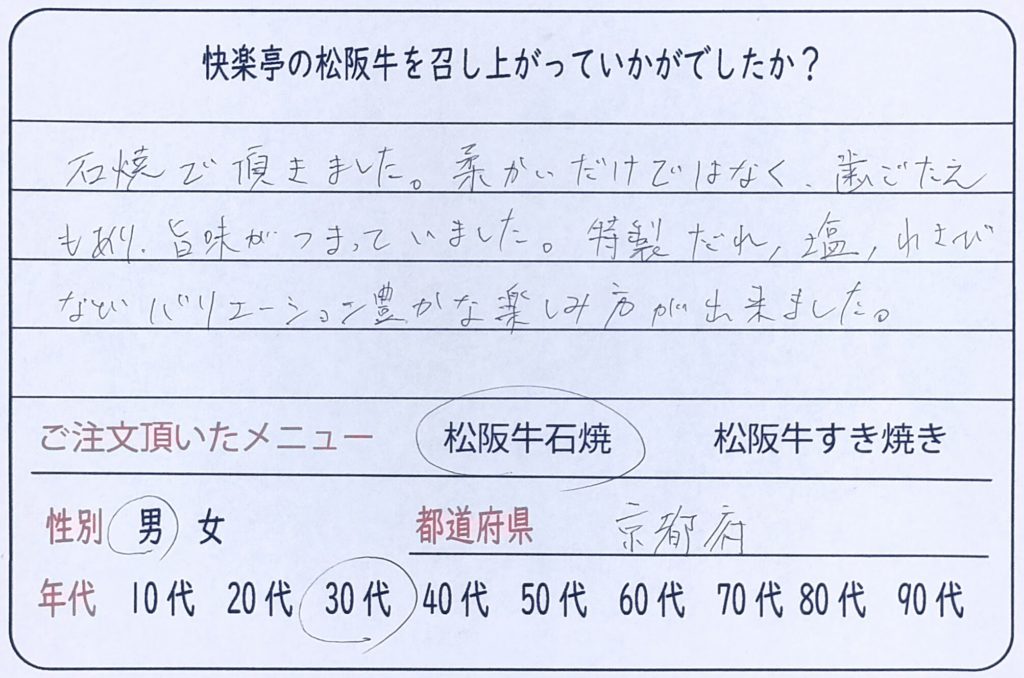 快楽亭の松阪牛を召し上がっていかがでしたか？
石焼で頂きました。柔かいだけではなく、歯ごたえ
もあり、旨味がつまっていました。特製だれ,塩,わさび
などバリエーション豊かな楽しみ方が出来ました。
ご注文頂いたメニュー 松阪牛石焼 松阪牛すき焼き
性別 男 女 都道府県 京都府
年代 10代 20代 30代 40代 50代 60代 70代 80代 90代